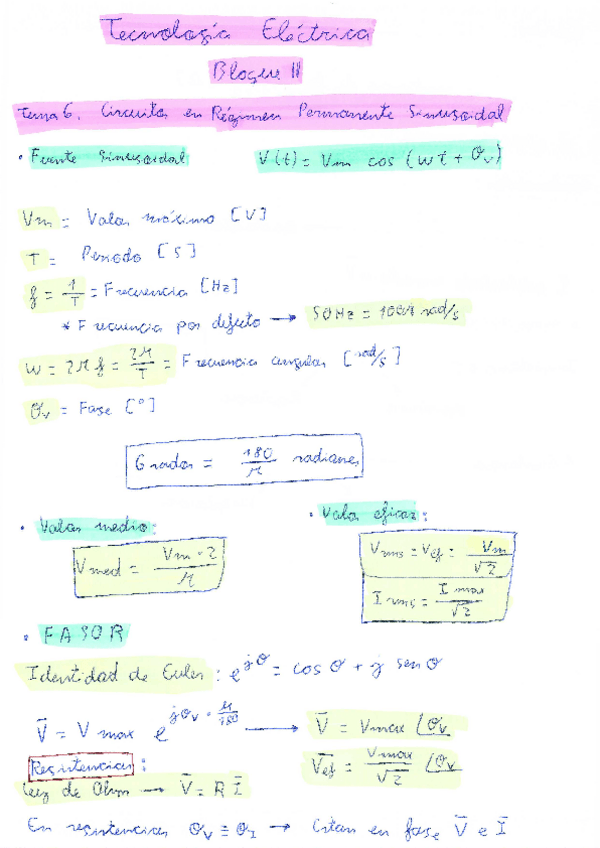 Tecnología Eléctrica
Bloque II
Tema 6. Circuitos en Régimen Permanente Sinusoidal
• Fuente Sinusoidal V(t) = Vm cos (wt + θv)
Vm = Valor máximo [V]
T = Periodo [S]
f = 1/T = Frecuencia [Hz]
* Frecuencia por defecto → 50Hz = 100π rad/s
w = 2πf = 2π/T = Frecuencia angular [rad/s]
θv = Fase [°]
Grados = 180/π radianes
• Valor medio: • Valor eficaz:
Vmed = Vm·2/π Vrms = Vef = Vm/√2
Irms = I max/√2
• FASOR
Identidad de Euler: e^jθ = cos θ + j sen θ
V̄ = V max e^jθv·π/180 → V̄ = Vmax ∠θv
Resistencias: V̄ef = Vmax/√2 ∠θv
Ley de Ohm → V̄ = R Ī
En resistencias θv ≡ θI → Están en fase V̄ e Ī